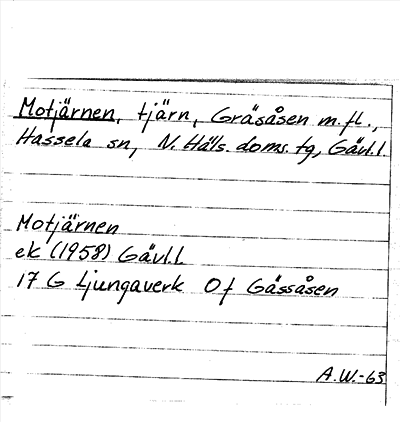 Motjärnen, tjärn, Gräsåsen m.fl.,
Hassela sn, N. Häls. doms. tg, Gävl.l.
Motjärnen
ek (1958) Gävl.l.
17 G Ljungaverk Of Gässåsen
A.W.-63